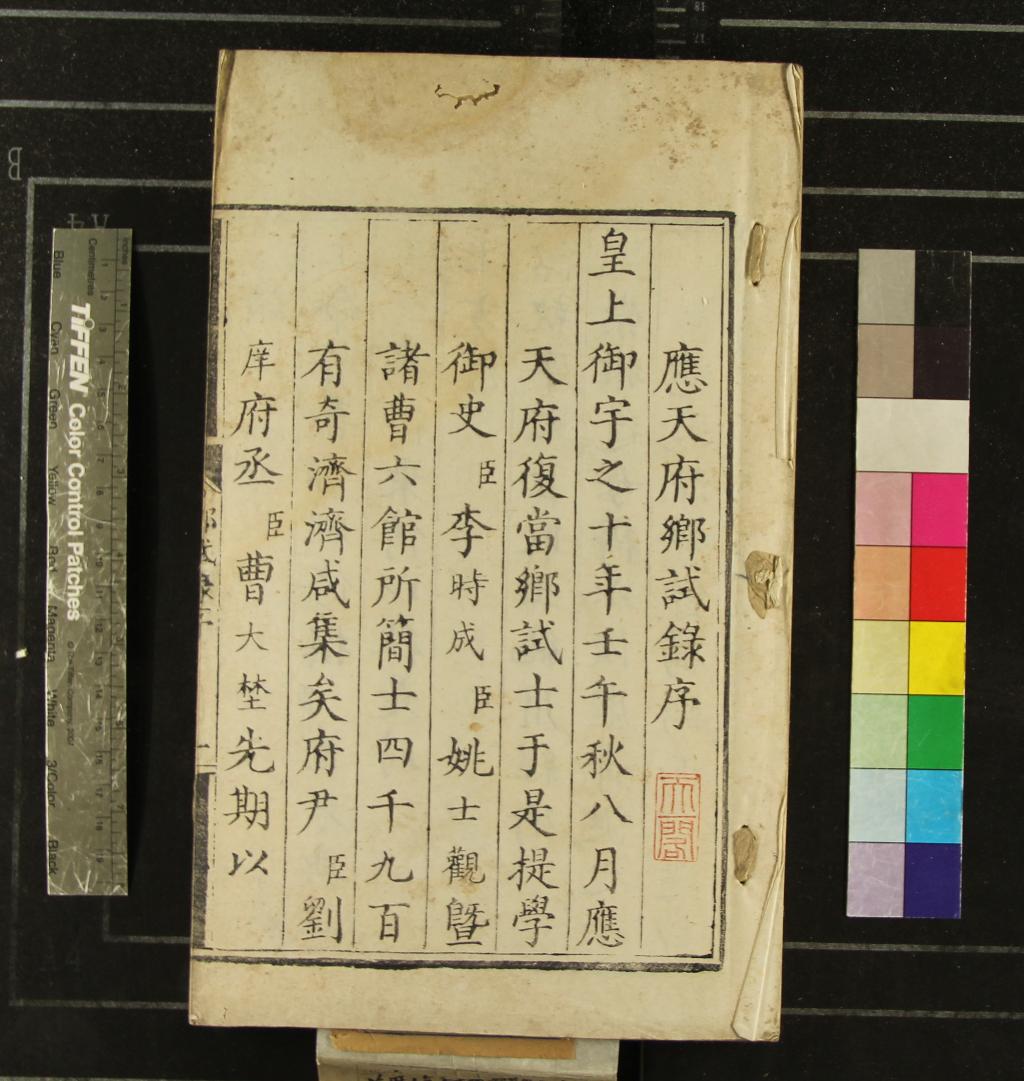 應天府鄉試錄序
天一閣
皇上御宇之十年壬午秋八月應
天府復當鄉試士于是提學
御史臣李時成臣姚士觀暨
諸曹六館所簡士四千九百
有奇濟濟咸集矣府尹臣劉
庠府丞臣曹大埜先期以
TIFFEN Color Control Patches
Inches
Centimetres
Blue
Cyan
Green
Yellow
Red
Magenta
White
3/Color
Black
B
A4